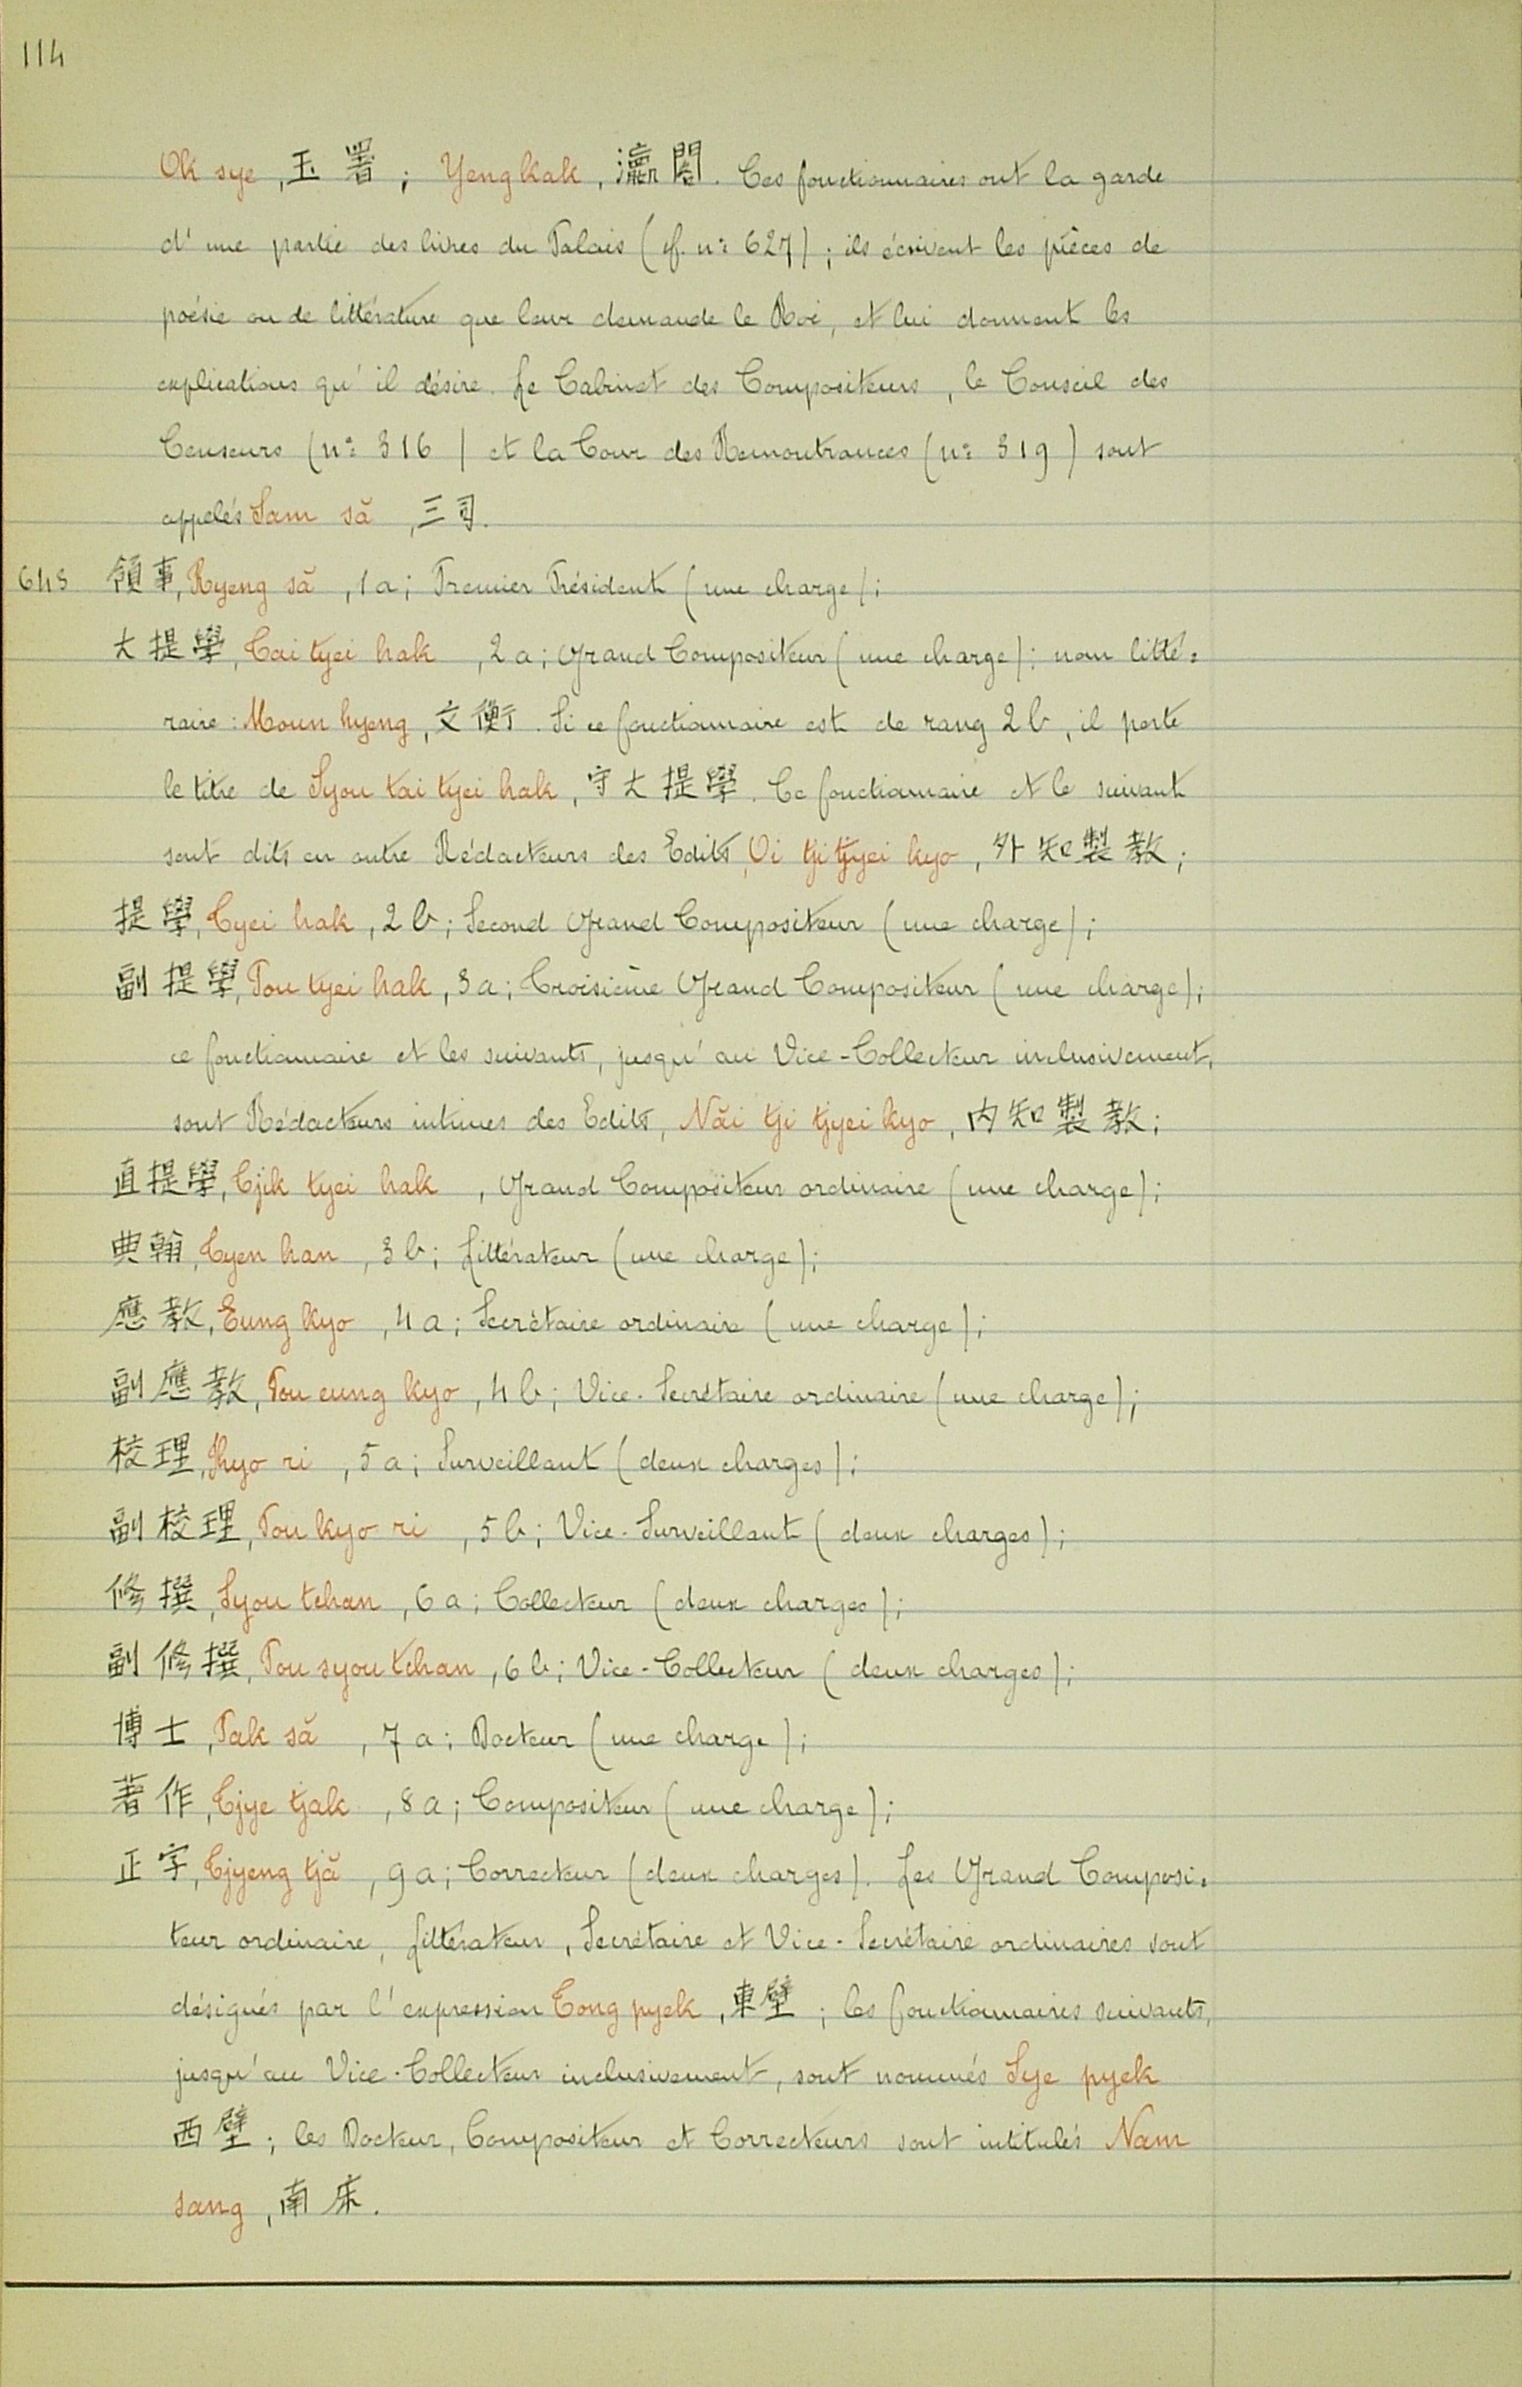 114
Ok sye, 玉署; Yeng kak, 瀛閣. Ces fonctionnaires ont la garde
d'une partie des livres du Palais (cf. nº 627); ils écrivent les pièces de
poésie ou de littérature que leur demande le Roi, et lui donnent les
explications qu'il désire. Le Cabinet des Compositeurs, le Conseil des
Censeurs (nº 316) et la Cour des Remontrances (nº 319) sont
appelés Sam să, 三司.
643 領事, Ryeng să, 1a; Premier Président (une charge);
大提學, Tai tyei hak, 2a; Grand Compositeur (une charge); nom litté-
raire: Moun hyeng, 文衡. Si ce fonctionnaire est de rang 2b, il porte
le titre de Syou tai tyei hak, 守大提學. Ce fonctionnaire et le suivant
sont dits en outre Rédacteurs des Edits, Oi tji tjyei kyo, 外知製教;
提學, Tyei hak, 2b; Second Grand Compositeur (une charge);
副提學, Pou tyei hak, 3a; Troisième Grand Compositeur (une charge);
ce fonctionnaire et les suivants, jusqu'au Vice-Collecteur inclusivement,
sont Rédacteurs intimes des Edits, Năi tji tjyei kyo, 内知製教;
直提學, Tjik tyei hak, Grand Compositeur ordinaire (une charge);
典翰, Tyen han, 3b; Littérateur (une charge);
應教, Eung kyo, 4a; Secrétaire ordinaire (une charge);
副應教, Pou eung kyo, 4b; Vice-Secrétaire ordinaire (une charge);
校理, Kyo ri, 5a; Surveillant (deux charges);
副校理, Pou kyo ri, 5b; Vice-Surveillant (deux charges);
修撰, Syou tchan, 6a; Collecteur (deux charges);
副修撰, Pou syou tchan, 6b; Vice-Collecteur (deux charges);
博士, Pak să, 7a; Docteur (une charge);
著作, Tjye tjak, 8a; Compositeur (une charge);
正字, Tjyeng tjă, 9a; Correcteur (deux charges). Les Grand Composi-
teur ordinaire, Littérateur, Secrétaire et Vice-Secrétaire ordinaires sont
désignés par l'expression Tong pyek, 東壁; les fonctionnaires suivants,
jusqu'au Vice-Collecteur inclusivement, sont nommés Sye pyek
西壁; les Docteur, Compositeur et Correcteurs sont intitulés Nam
sang, 南床.